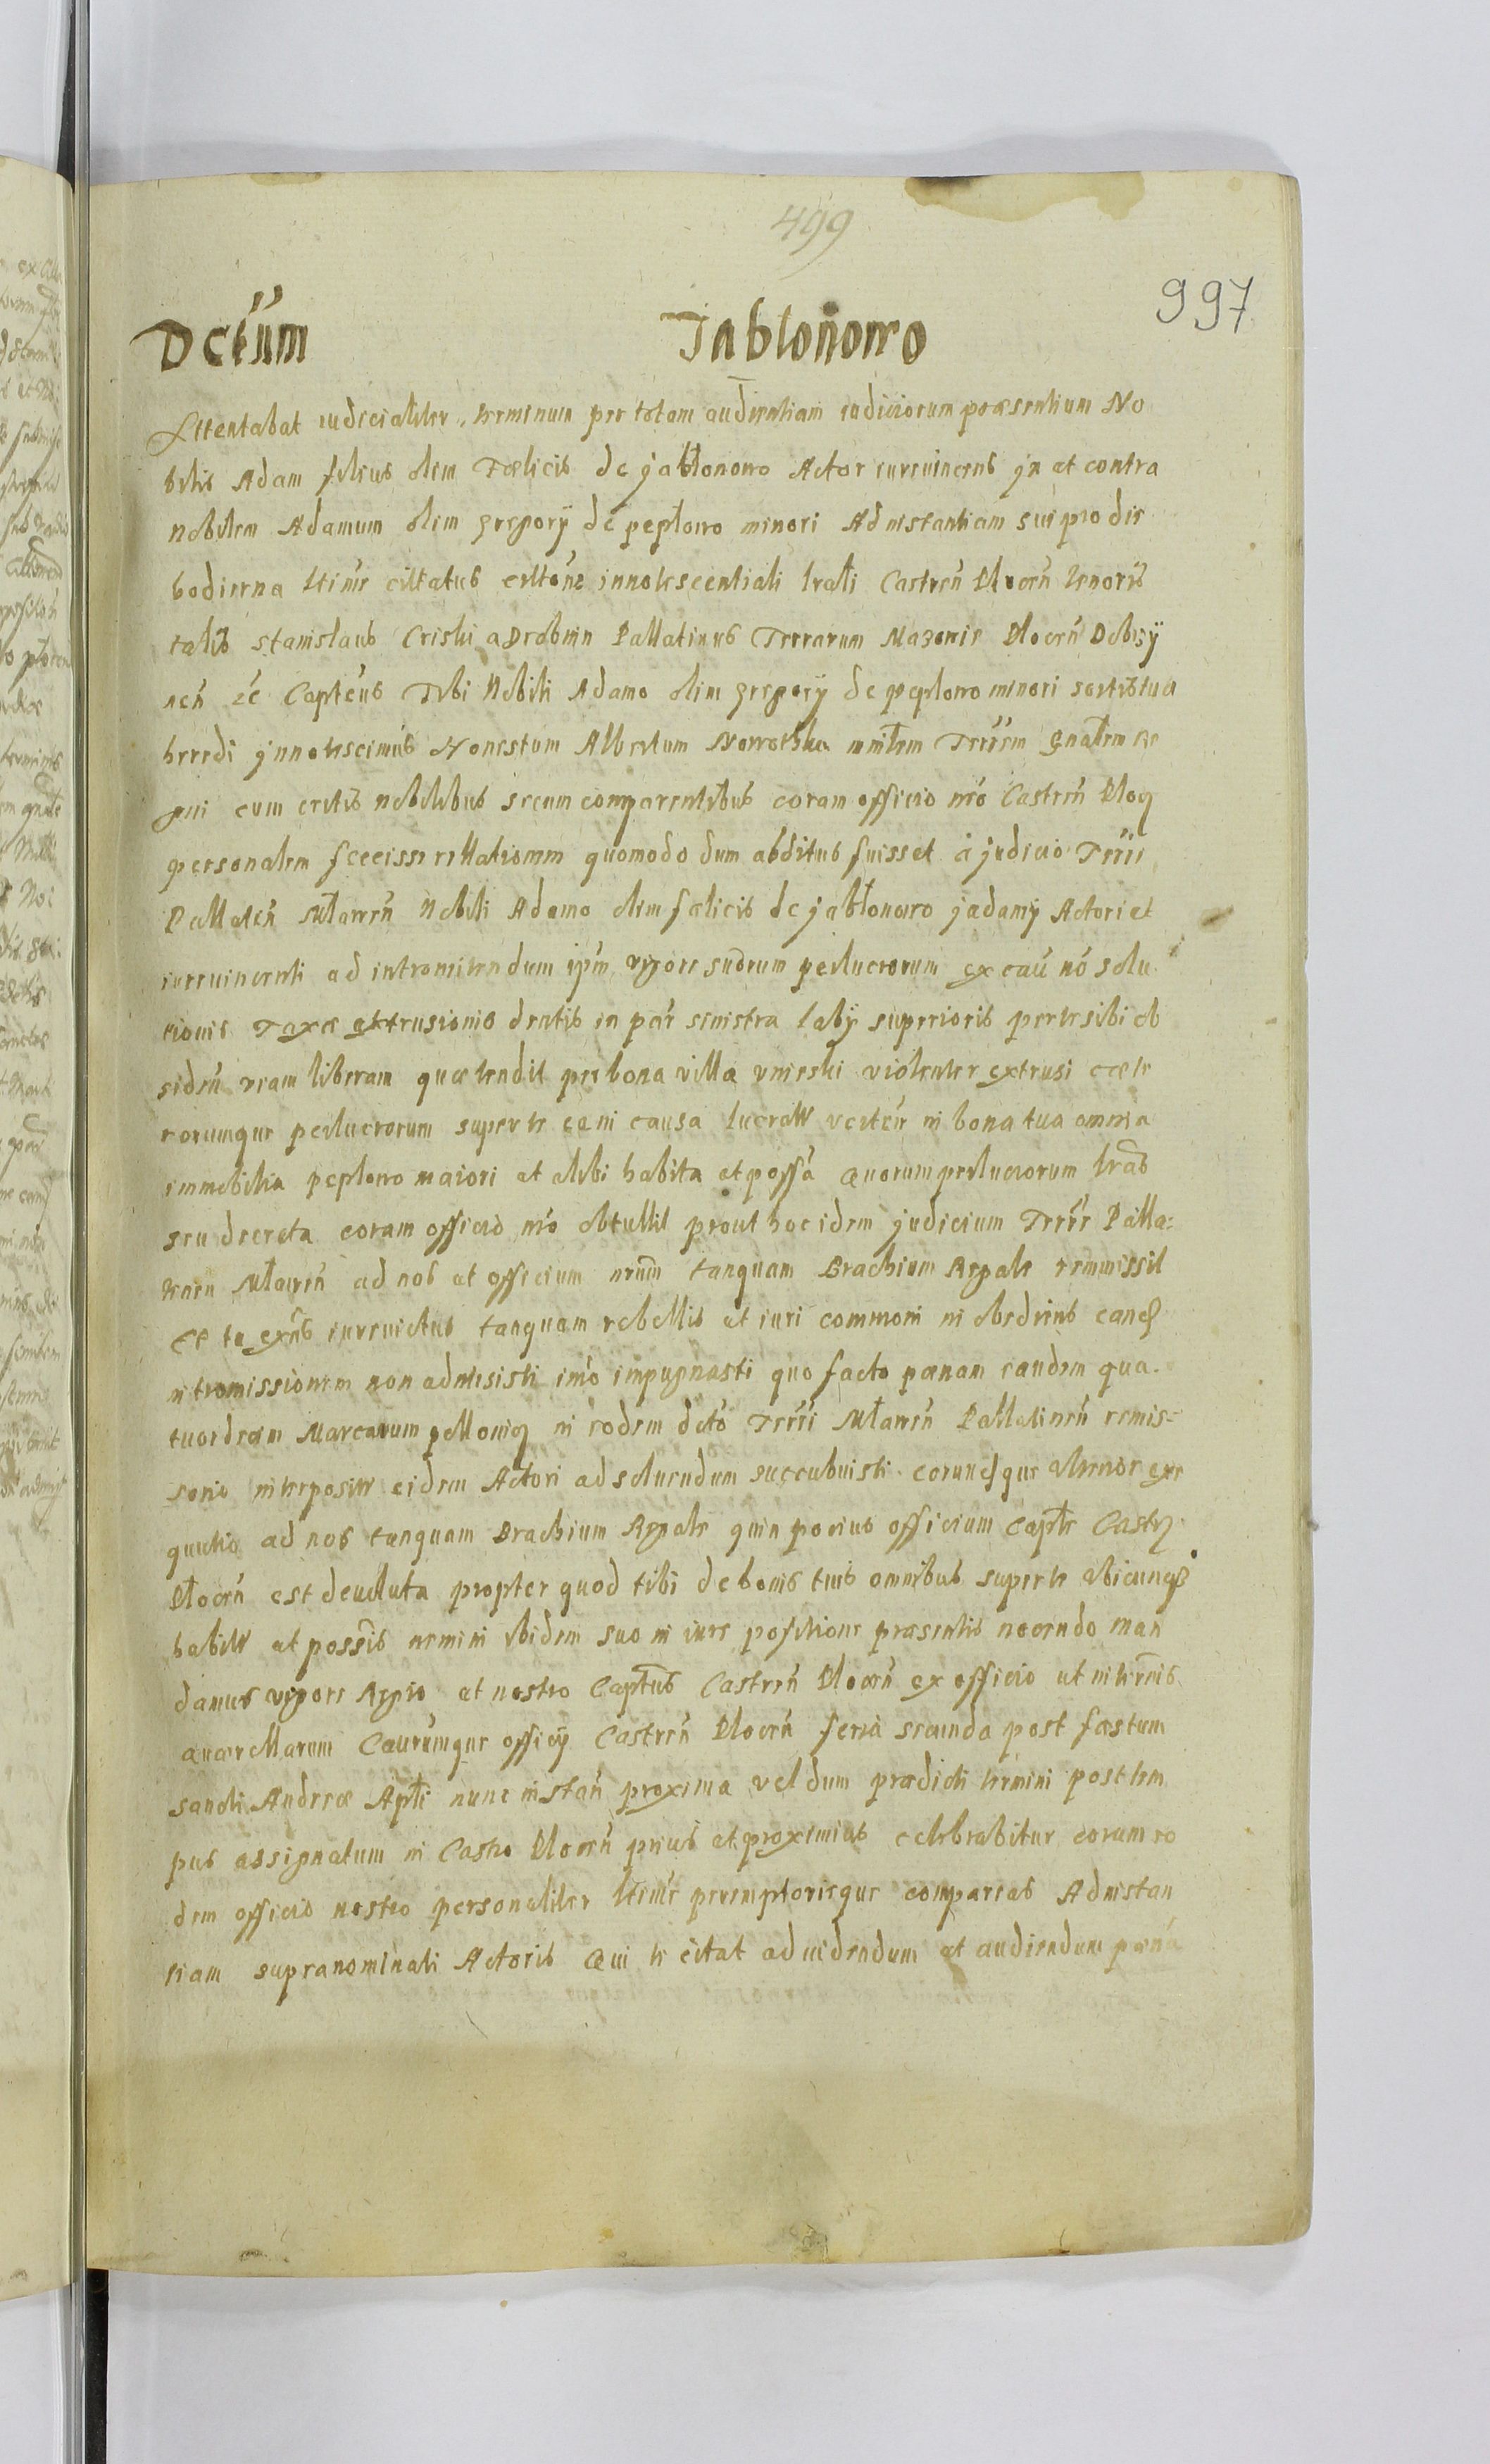 499
997
Dctum Jabłonowo
Attentabat iudicialiter terminum per totam audientiam iudiciorum præsentium No
bilis Adam filius olim Fœlicis de jabłonowo Actor iurevincens jn et contra
nobilem Adamum olim gregorij de pepłowo minori Ad instantiam sui pro die
hodierna ltime cittatus cittone innotescentiali lrali Castren Plocen tenoris
talis Stanislaus Criski a Drobnin Pallatinus Terrarum Mazovie Plocen Dobrzÿ
nen zc Capteus Tibi Nobili Adamo olim gregorij de pepłowo minori sortis tua
heredi jnnotescimus Honestum Albertum Nowothka mnistem Terrem gnalem Re
gni cum certis nobilibus secum comparentibus coram officio nro Castren Plocen
personalem fecisse rellationem quomodo dum abditus fuisset à judicio Terri
Pallaten Mławen Nobili Adamo olim fœlicis de jabłonowo jadamÿ Actori et
iurevincenti ad intromittendum ipm vigore suorum perlucrorum ex cau no solu
cionis Taxæ extrusionis dentis in par sinistra labÿ superioris per te sibi ob
siden viam liberam quæ tendit per bona villa vnieski violenter extrusi cæte
rorumque perlucrorum super te ea in causa lucratt verten in bona tua omnia
immobilia pepłowo maiori et alibi habita et possa Quorum perlucrorum lras
seu decreta coram officio nro obtullit prout hoc idem judicium Terre Palla:
tinen Mławen ad nos et officium nrum tanquam Brachium Regale remmissit
Et tu exns iurevictus tanquam rebellis et iuri commoni in obediens eand
intromissionem non admisisti imo impugnasti quo facto pœnam eandem qua-
tuordecim Marcarum pollonicq in eodem dcto Terri Mławen Pallatinen remis-
sorio interposite eidem Actori ad soluendum succubuisti eorundque ulterior exe
quutio ad nos tanquam Brachium Regale quin pocius officium Captle Castrq
Plocen est deuoluta propter quod tibi de bonis tuis omnibus super te vbicunq
habitt et possis nemini ibidem suo in iure positione præsentis nocendo man
damus vigore Regio et nostro Captus Castren Plocen ex officio ut in termis
Quærellarum Caurumque officij Castren Plocen feria secunda post fæstum
sancti Andreæ Apli nunc instan proxima vel dum prædicti termini post tem
pus assignatum in Castro Plocen prius et proximius celebrabitur coram eo
dem officio nostro personaliter ltime peremptorieque compareas Ad instan
tiam supranominati Actoris Qui te citat ad uidendum et audiendum pœna